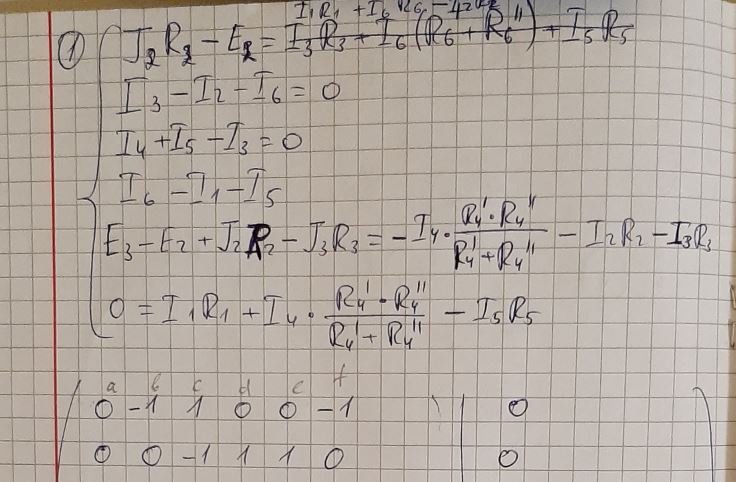 I₁R₁ + I₆ R₆
① J₂R₂ − E₂ = I₃R₃ + I₆(R₆ + R₆'') + I₅R₅
I₃ − I₂ − I₆ = 0
I₄ + I₅ − I₃ = 0
I₆ − I₁ − I₅
E₃ − E₂ + J₂R₂ − J₃R₃ = −I₄ · (R₄' · R₄'')/(R₄' + R₄'') − I₂R₂ − I₃R₃
0 = I₁R₁ + I₄ · (R₄' · R₄'')/(R₄' + R₄'') − I₅R₅
a b c d e f
0 −1 1 0 0 −1 | 0
0 0 −1 1 1 0 | 0